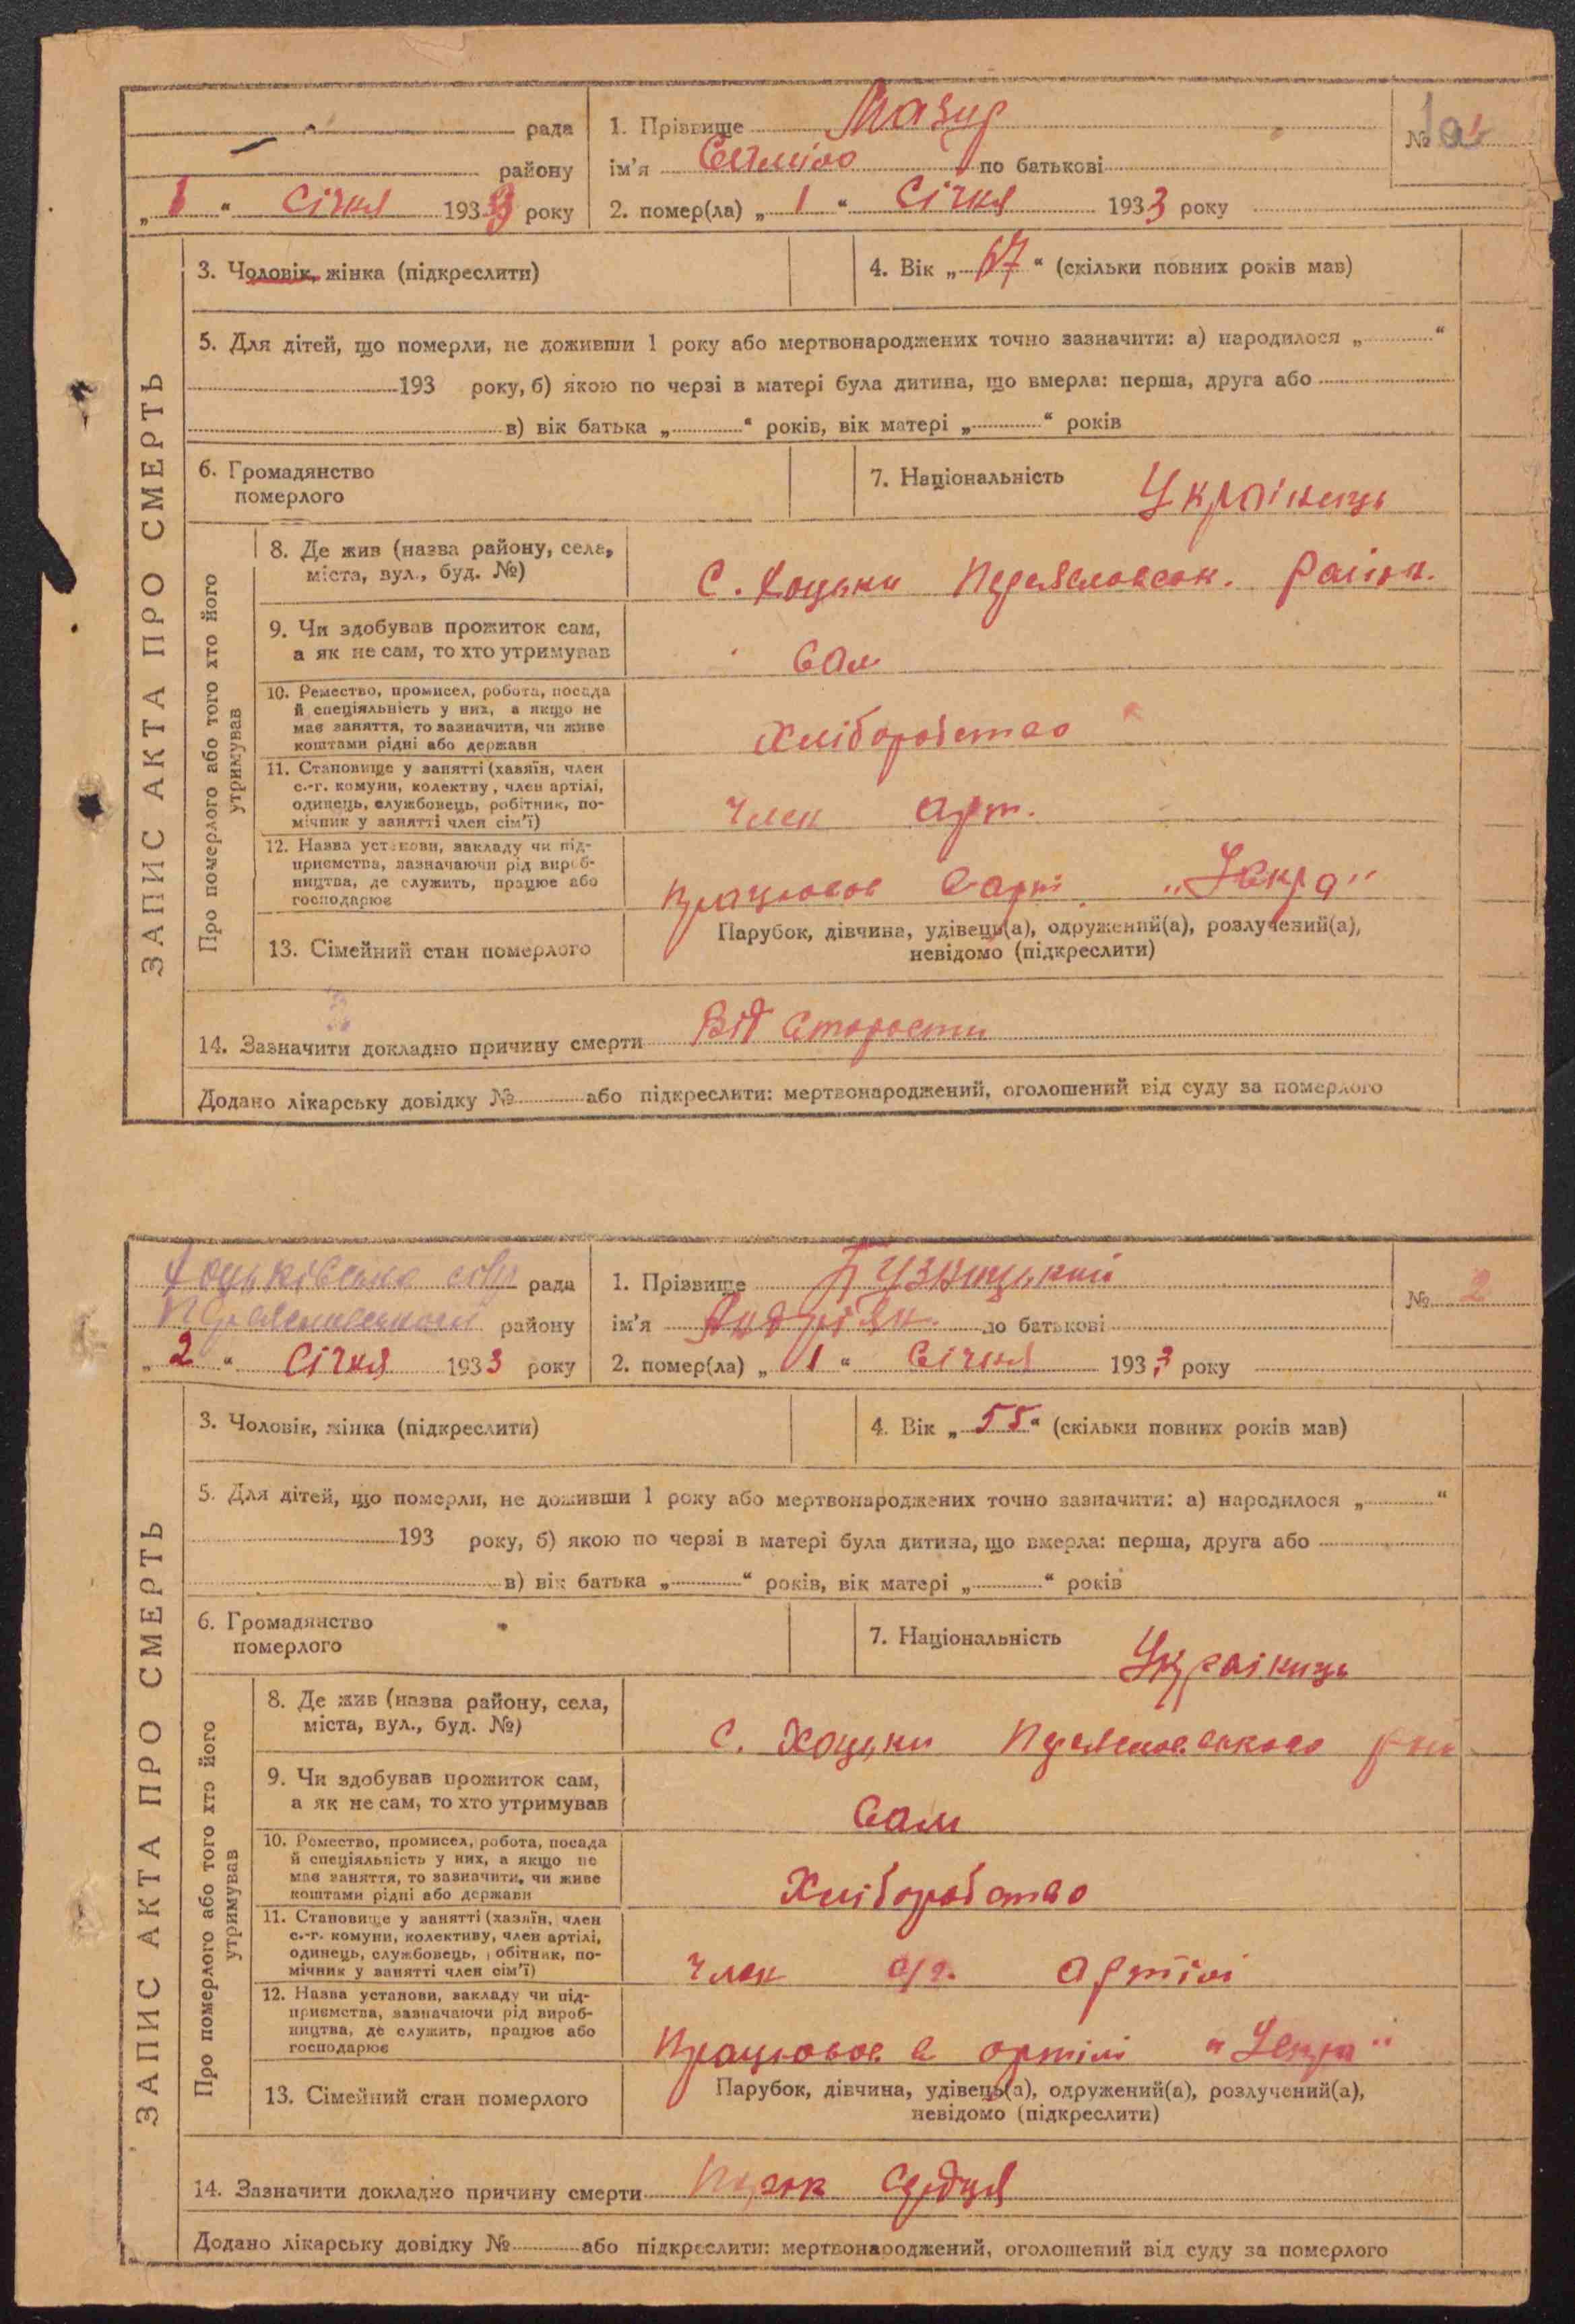 рада
району
„ 1 “ Січня 1933 року
1. Прізвище Мазур
ім’я по батькові
2. помер(ла) „ 1 “ Січня 1933 року
№
ЗАПИС АКТА ПРО СМЕРТЬ
3. Чоловік, жінка (підкреслити)
4. Вік „ 67 “ (скільки повних років мав)
5. Для дітей, що померли, не доживши 1 року або мертвонароджених точно зазначити: а) народилося „ “
193 року, б) якою по черзі в матері була дитина, що вмерла: перша, друга або
в) вік батька „ “ років, вік матері „ “ років
6. Громадянство
померлого
7. Національність Українець
Про померлого або того хто його
утримував
8. Де жив (назва району, села,
міста, вул., буд. №)
С. Хоцьки Переяславськ. район.
9. Чи здобував прожиток сам,
а як не сам, то хто утримував
Сам
10. Ремество, промисел, робота, посада
й спеціяльність у них, а якщо не
має заняття, то зазначити, чи живе
коштами рідні або держави
Хліборобство
11. Становище у занятті (хазяїн, член
с.-г. комуни, колективу, член артілі,
одинець, службовець, робітник, по-
мічник у занятті член сім’ї)
Член арт.
12. Назва установи, закладу чи під-
приємства, зазначаючи рід вироб-
ництва, де служить, працює або
господарює
працював в арт. „Іскра“
13. Сімейний стан померлого
Парубок, дівчина, удівець(а), одружений(а), розлучений(а),
невідомо (підкреслити)
14. Зазначити докладно причину смерти Від старости
Додано лікарську довідку № або підкреслити: мертвонароджений, оголошений від суду за померлого
Хоцьківська рада
Переяславський району
„ 2 “ Січня 1933 року
1. Прізвище
ім’я Андріян по батькові
2. помер(ла) „ 1 “ Січня 1933 року
№ 2
ЗАПИС АКТА ПРО СМЕРТЬ
3. Чоловік, жінка (підкреслити)
4. Вік „ 55 “ (скільки повних років мав)
5. Для дітей, що померли, не доживши 1 року або мертвонароджених точно зазначити: а) народилося „ “
193 року, б) якою по черзі в матері була дитина, що вмерла: перша, друга або
в) вік батька „ “ років, вік матері „ “ років
6. Громадянство
померлого
7. Національність Українець
Про померлого або того хто його
утримував
8. Де жив (назва району, села,
міста, вул., буд. №)
С. Хоцьки Переяславського рай
9. Чи здобував прожиток сам,
а як не сам, то хто утримував
Сам
10. Ремество, промисел, робота, посада
й спеціяльність у них, а якщо не
має заняття, то зазначити, чи живе
коштами рідні або держави
Хліборобство
11. Становище у занятті (хазяїн, член
с.-г. комуни, колективу, член артілі,
одинець, службовець, робітник, по-
мічник у занятті член сім’ї)
Член с/г. артілі
12. Назва установи, закладу чи під-
приємства, зазначаючи рід вироб-
ництва, де служить, працює або
господарює
Працював в артілі „Іскра“
13. Сімейний стан померлого
Парубок, дівчина, удівець(а), одружений(а), розлучений(а),
невідомо (підкреслити)
14. Зазначити докладно причину смерти Порок сердця
Додано лікарську довідку № або підкреслити: мертвонароджений, оголошений від суду за померлого